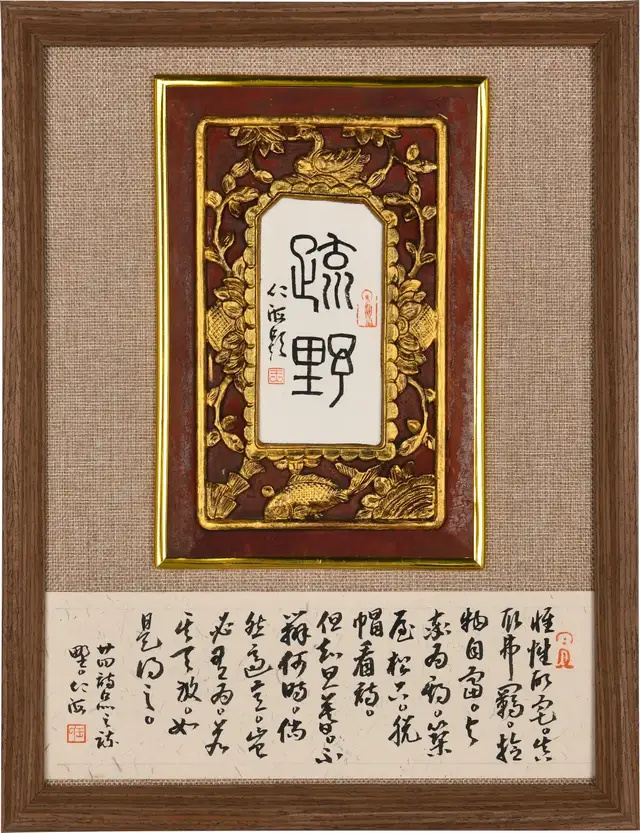 疏野
仁海題
惟性所宅。真
取弗羈。拾
物自富。与
率為期。築
屋松下。脱
帽看詩。
但知旦暮。不
辨何時。倘
然適意。豈
必有為。若
其天放。如
是得之。
廿四詩品之疏
野。仁海